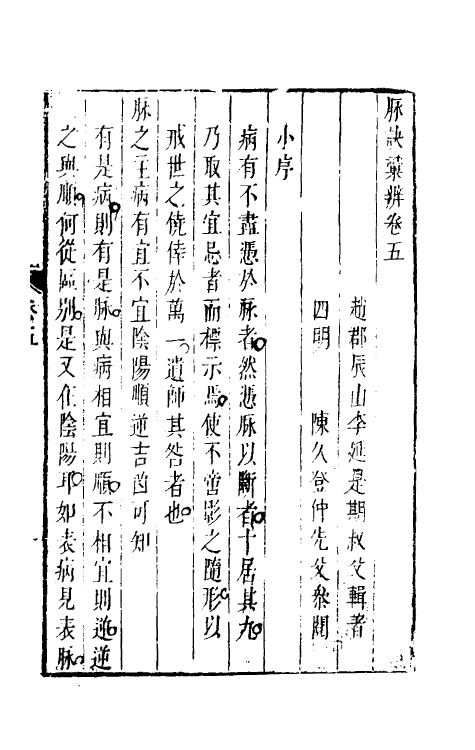 脉訣彙辨卷五
趙郡辰山李延是期叔父輯著
四明　陳久登仲先父參閱
小序
病有不盡憑於脉者然憑脉以斷者十居其九
乃取其宜忌者而標示焉使不啻影之隨形以
戒世之僥倖於萬一遺師其咎者也
脉之主病有宜不宜陰陽順逆吉凶可知
有是病則有是脉與病相宜則順不相宜則逆逆
之與順何從區別是又在陰陽耳如表病見表脉
卷五